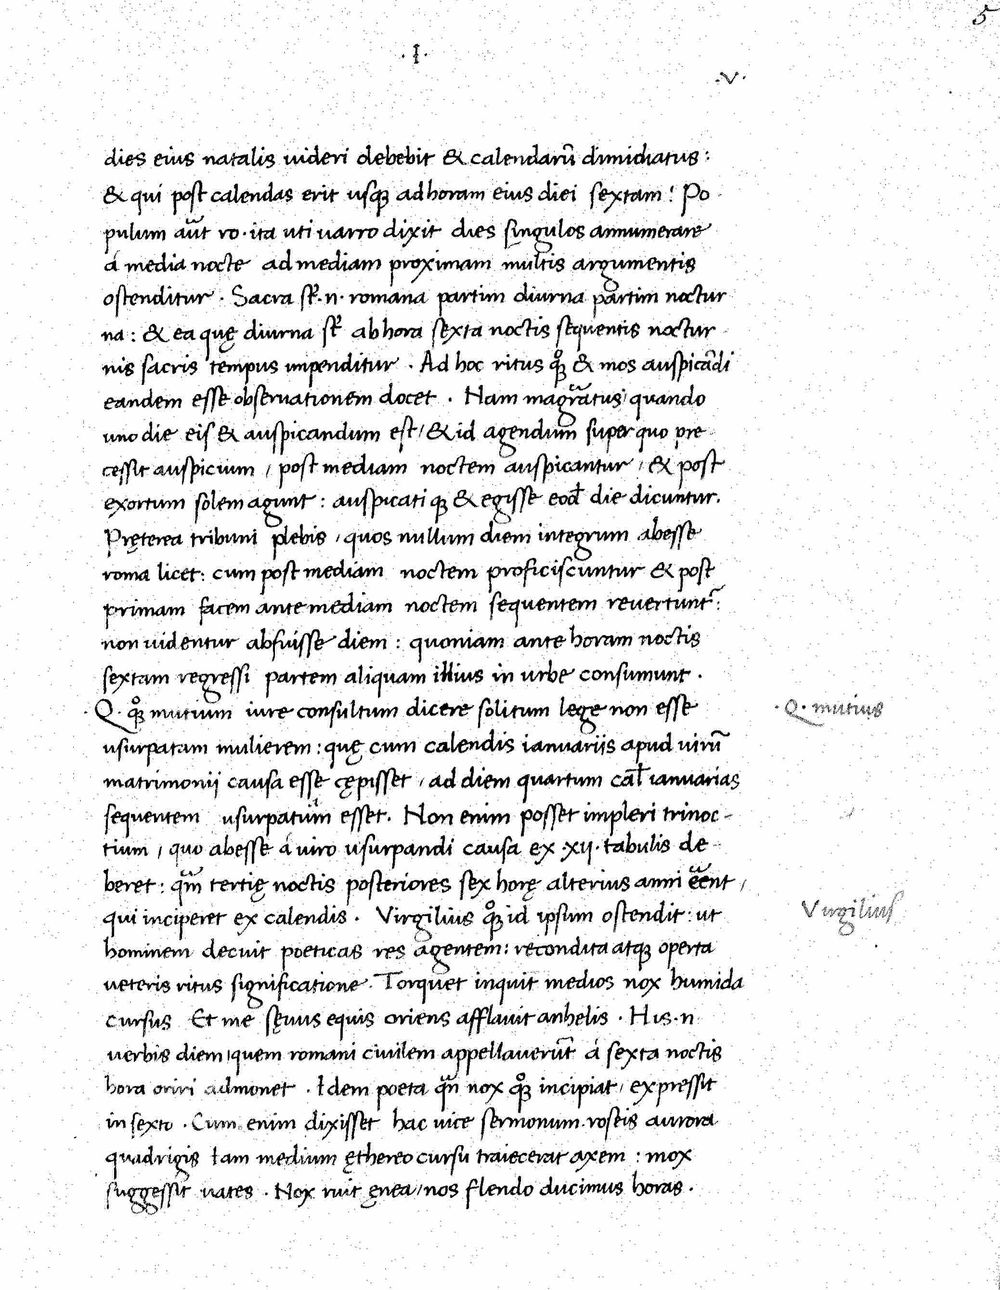 5
·I·
·V·
dies eius natalis uideri debebit & calendarū dimidiatus:
& qui post calendas erit usq; ad horam eius diei sextam! Po
pulum aūt ro· ita uti uarro dixit dies singulos annumerare
á media nocte ad mediam proximam multis argumentis
ostenditur · Sacra st̄·n· romana partim diurna partim noctur
na: & ea quę diurna st̄ ab hora sexta noctis sequentis noctur
nis sacris tempus impenditur · Ad hoc ritus qͦq; & mos auspicādi
eandem esse obseruationem docet · Nam magr̄atus quando
uno die eis & auspicandum est / & id agendum super quo pre
cessit auspicium / post mediam noctem auspicantur / & post
exortum solem agunt: auspicatiq; & egisse eod̄ die dicuntur.
Pręterea tribuni plebis / quos nullum diem integrum abesse
roma licet: cum post mediam noctem proficiscuntur & post
primam facem ante mediam noctem sequentem reuertunt᷑:
non uidentur abfuisse diem: quoniam ante horam noctis
sextam regressi partem aliquam illius in urbe consumunt ·
·Q· qͦq; mutium iure consultum dicere solitum lege non esse
·Q· mutius
usurpatam mulierem: quę cum calendis ianuariis apud uirū
matrimonij causa esse cępisset / ad diem quartum cal̄ ianuarias
sequentem usurpatum esset. Non enim posset impleri trinoc-
tium / quo abesse á uiro usurpandi causa ex ·xij· tabulis de
beret: qm̄ tertię noctis posteriores sex horę alterius anni eēnt /
qui inciperet ex calendis · Virgilius qͦq; id ipsum ostendit: ut
Virgilius
hominem decuit poeticas res agentem: recondita atq; operta
ueteris ritus significatione · Torquet inquit medios nox humida
cursus Et me sęuus equis oriens afflauit anhelis · His·n·
uerbis diem / quem romani ciuilem appellauerūt á sexta noctis
hora oriri admonet · Idem poeta qn̄ nox qͦq; incipiat / expressit
in sexto · Cum enim dixisset hac uice sermonum roseis aurora
quadrigis Iam medium ęthereo cursu traiecerat axem: mox
suggessit uates · Nox ruit ęnea / nos flendo ducimus horas ·